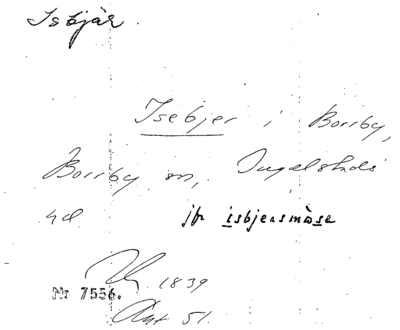 Isbjär.
Isebjer i Borrby,
Borrby sn, Ingelstads
hd jfr isbjersmòse
1839
Nr 7556.
Akt 51.